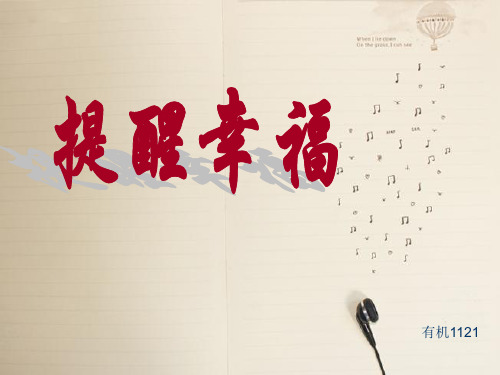 When I lie down
On the grass I can see
提醒幸福
有机1121